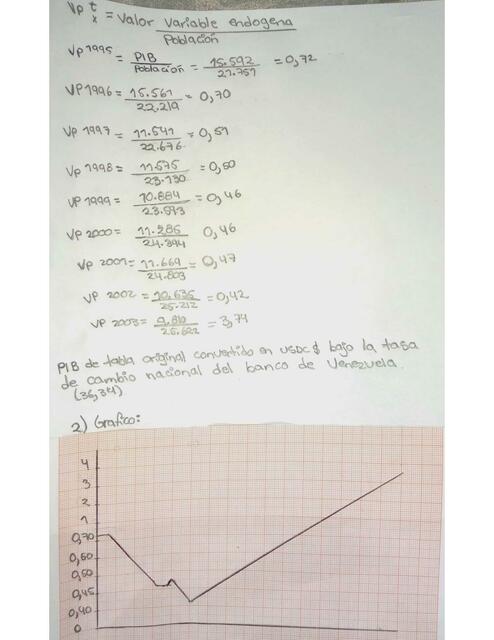 Vp t x = Valor variable endogena
Población
VP 1995 = PIB / Población = 15.592 / 21.751 = 0,72
VP 1996 = 15.561 / 22.219 = 0,70
VP 1997 = 11.541 / 22.676 = 0,51
VP 1998 = 11.575 / 23.130 = 0,50
VP 1999 = 10.884 / 23.593 = 0,46
VP 2000 = 11.285 / 24.394 0,46
VP 2001 = 11.669 / 24.803 = 0,47
VP 2002 = 10.635 / 25.212 = 0,42
VP 2003 = 9.810 / 25.622 = 3,74
PIB de tabla original convertido en USDC $ bajo la tasa
de cambio nacional del banco de Venezuela.
(36,34)
2) Grafico:
4
3
2
1
0,70
0,60
0,50
0,45
0,40
0